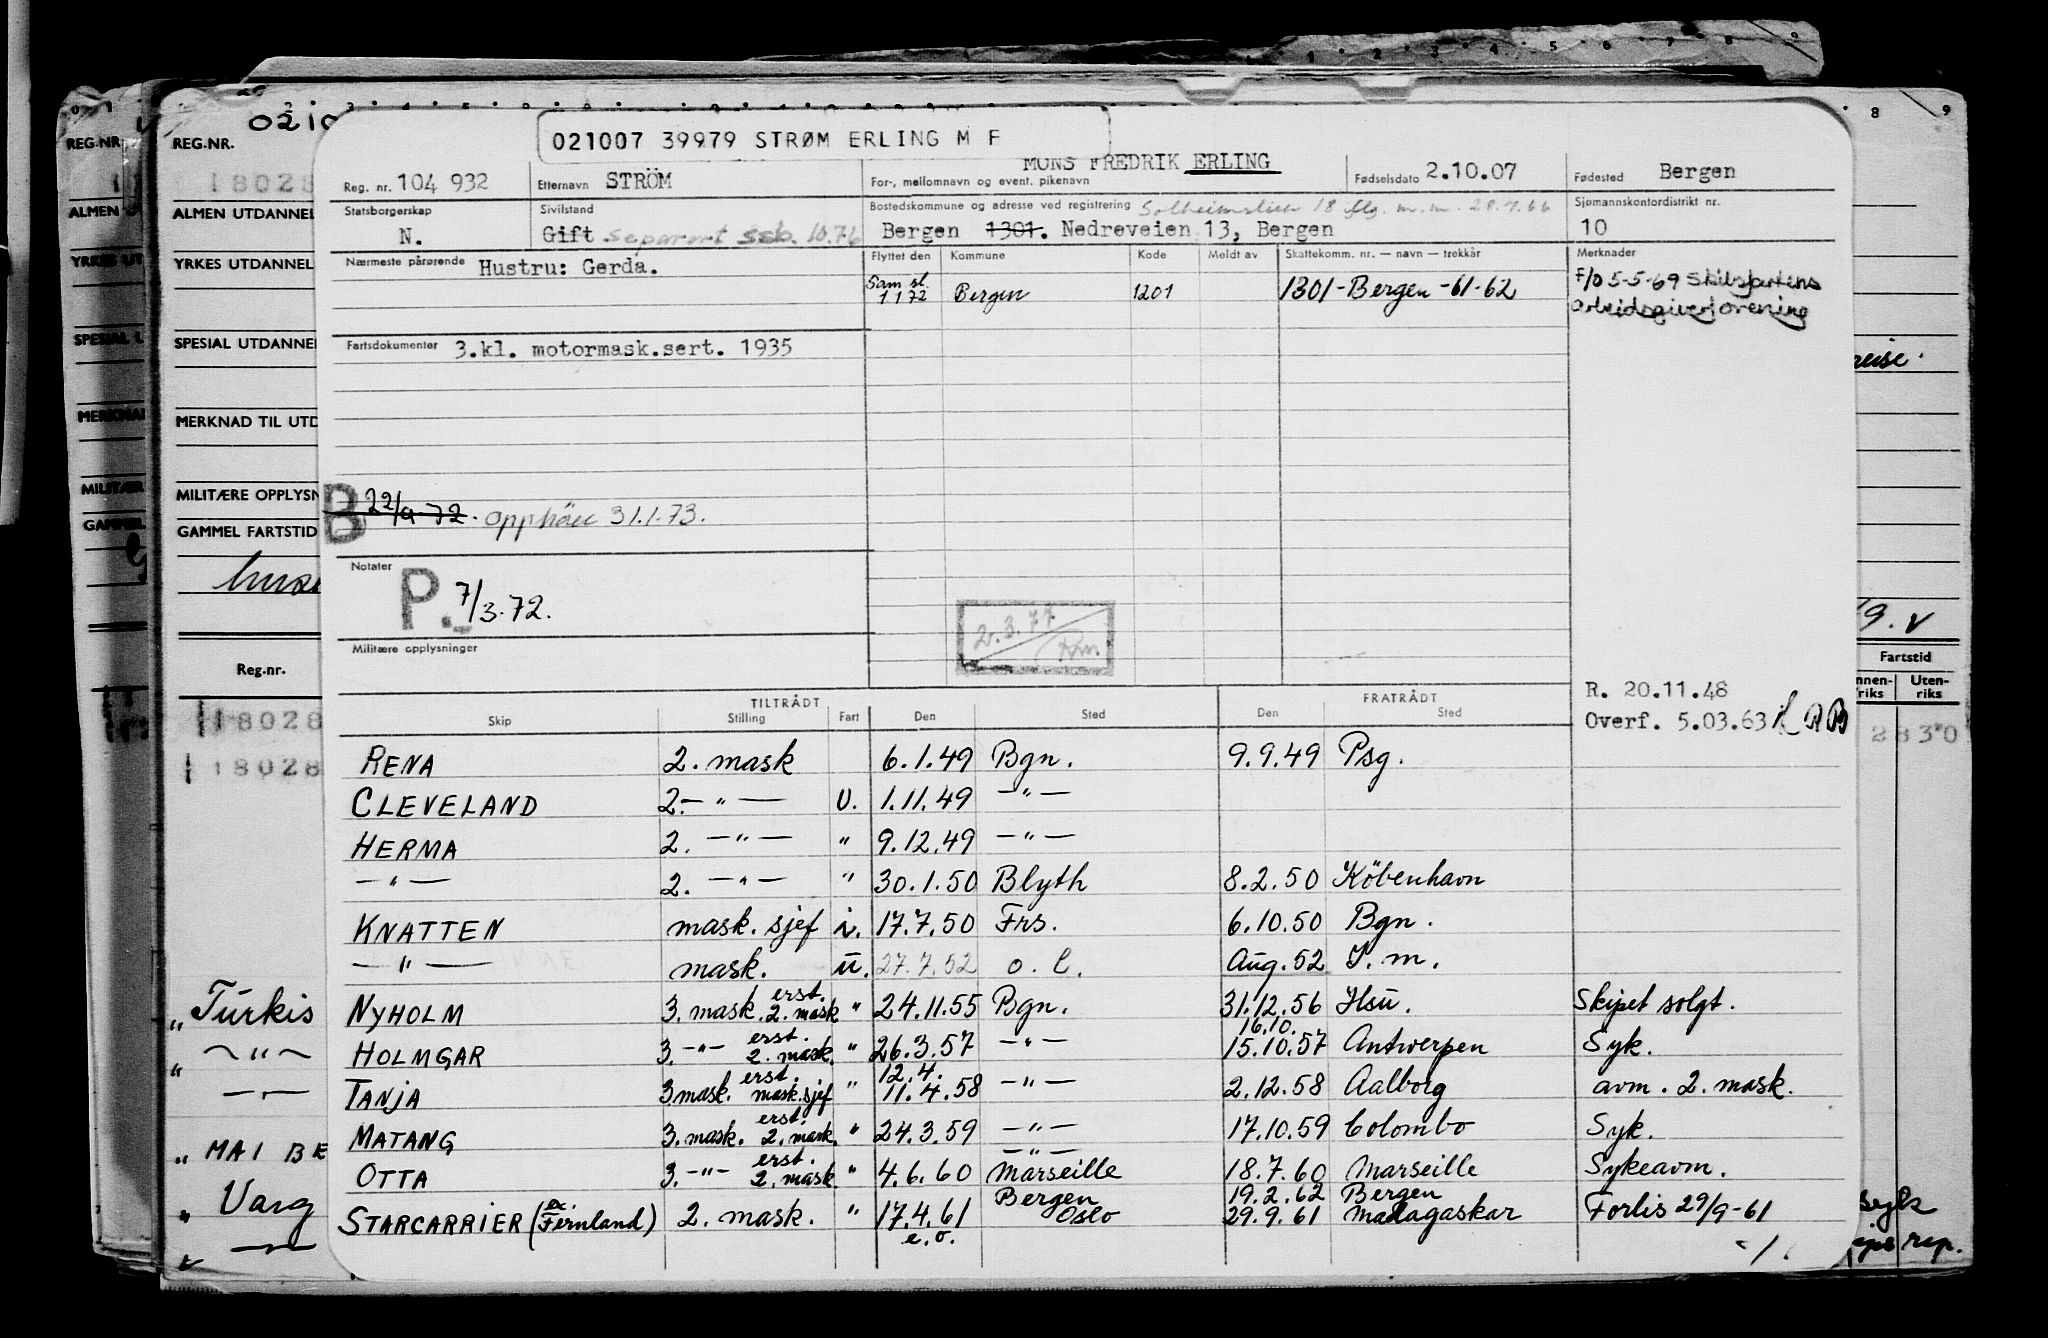 021007 39979 STRØM ERLING M F
Reg. nr. 104 932 Etternavn STRÖM For-, mellomnavn og event. pikenavn MONS FREDRIK ERLING Fødselsdato 2.10.07 Fødested Bergen
Statsborgerskap N. Sivilstand Gift separert ssb. 10.76 Bostedskommune og adresse ved registrering Solheimslien 18 m.m. 28.9.66 Sjømannskontordistrikt nr. 10
Bergen 1301. Nedreveien 13, Bergen
Nærmeste pårørende Hustru: Gerda. Flyttet den Kommune Kode Meldt av Skattekomm. nr. — navn — trekkår Merknader
Sam sl. 1 1 72 Bergen 1201 1301-Bergen-61-62 F/O 5-5-69 Skibsfartens
arbeidsgiverforening
Fartsdokumenter 3.kl. motormask.sert. 1935
B 22/9-72. opphäv 31.1.73.
Notater P. 7/3.72.
2.3.77
Militære opplysninger
R. 20.11.48
Overf. 5.03.63
TILTRÅDT FRATRÅDT
Skip Stilling Fart Den Sted Den Sted
RENA 2. mask 6.1.49 Bgn. 9.9.49 Psg.
CLEVELAND 2. —"— U. 1.11.49 —"—
HERMA 2. —"— " 9.12.49 —"—
—"— 2. —"— " 30.1.50 Blyth 8.2.50 København
KNATTEN mask. sjef i. 17.7.50 Frs. 6.10.50 Bgn.
—"— mask. u. 27.7.52 o. l. Aug. 52 S. m.
NYHOLM 3. mask. erst. 2. mask " 24.11.55 Bgn. 31.12.56 Hsu. Skipet solgt.
HOLMGAR 3. —"— erst. 2. mask. " 26.3.57 —"— 16.10. 15.10.57 Antwerpen Syk.
TANJA 3. mask. erst. mask. sjef " 12.4. 11.4.58 —"— 2.12.58 Aalborg avm. 2. mask.
MATANG 3. mask. erst. 2. mask. " 24.3.59 —"— 17.10.59 Colombo Syk.
OTTA 3. —"— erst. 2. mask. " 4.6.60 —"— Marseille 18.7.60 Marseille Sykeavm.
STARCARRIER (ex. Fernland) 2. mask. " 17.4.61 e. o. Bergen Oslo 19.2.62 Bergen 29.9.61 Madagaskar Forlis 29/9-61
-/.
REG.NR.
ALMEN UTDANNEL
YRKES UTDANNEL
SPESIAL UTDANNEL
MERKNAD TIL UTD
MILITÆRE OPPLYSN
GAMMEL FARTSTID
Reg.nr.
18028
18028
" Turkis
" —"—
—"—
" MAI BE
" Varg
REG.NR.
ALMEN U
YRKES UT
SPESIAL U
MERKNAD
MILITÆR
GAMMEL
reise.
19. v
Fartstid
nnen- riks Uten- riks
2830
syk
rep.